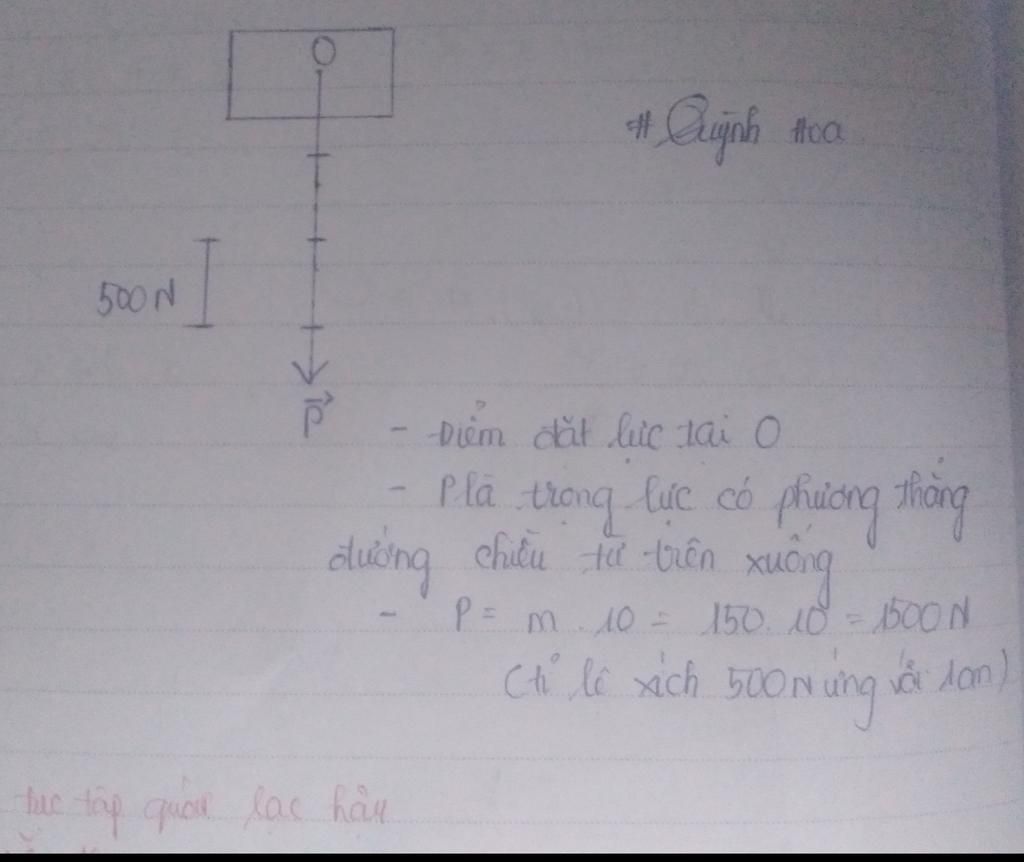 O
# Quỳnh Hoa
500N
P→
- Điểm đặt lực tại O
- P là trọng lực có phương thẳng
đường chiều từ trên xuống
- P = m . 10 = 150. 10 = 1500N
(tỉ lê xích 500N ứng với 1cm)
tục tập quán lạc hậu